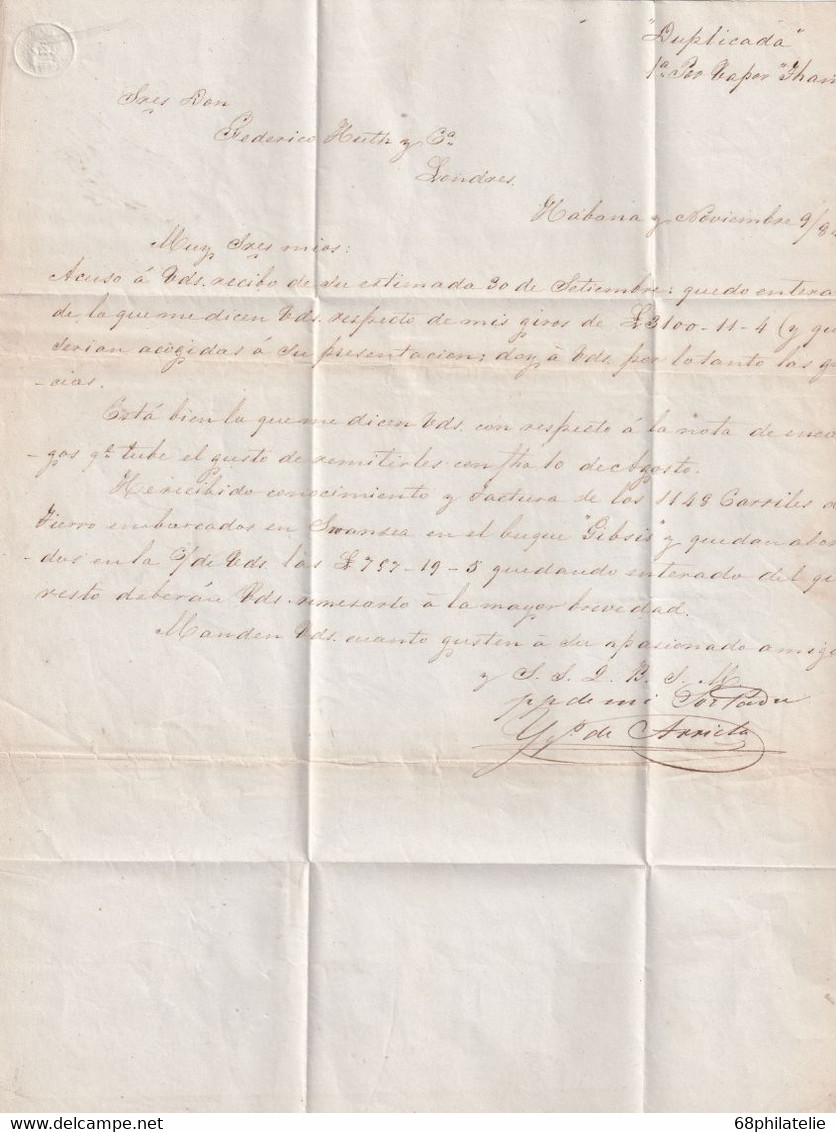 "Duplicada"
1ª Por Vapor "Tham
Sres Don
Federico Huth y Cª
Londres.
Habana y Noviembre 9/8
Muy Sres mios:
Acuso á Vds. recibo de su estimada 30 de Setiembre: quedo entera
de la que me dicen Vds. respecto de mis giros de £3100-11-4 (y que
serian acogidas á su presentacion; doy á Vds. por lo tanto las gra
-cias.
Está bien la que me dicen Vds. con respecto á la nota de enca
-gos qe tube el gusto de remitirles con fha 10 de Agosto.
He recibido conocimiento y factura de los 1148 Carriles de
Fierro embarcados en Swansea en el buque "Gibsis" y quedan abon
-dos en la C/ de Vds. las £757-19-5 quedando enterado del que
resto deberán Vds. remesarlo á la mayor brevedad.
Manden Vds. cuanto gusten á su apasionado amigo
y S. S. Q. B. S. M.
pp de mi Sor Padre
Yº de Arrieta
68philatelie